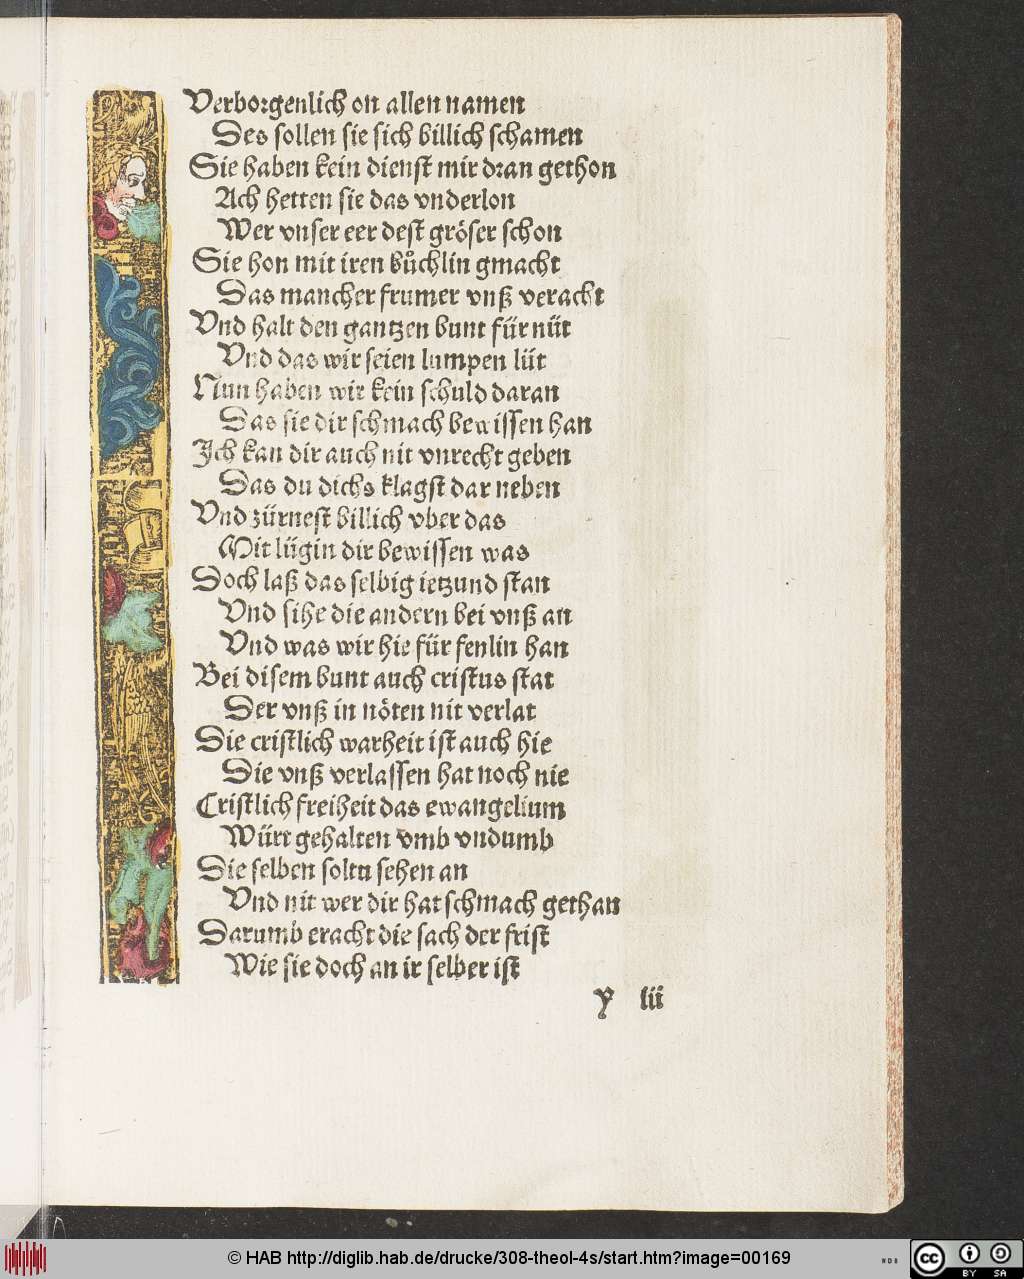 Verborgenlich on allen namen
Des sollen sie sich billich schamen
Sie haben kein dienst mir dran gethon
Ach hetten sie das vnderlon
Wer vnser eer dest gröser schon
Sie hon mit iren bůchlin gmacht
Das mancher frumer vnß veracht
Vnd halt den gantzen bunt für nüt
Vnd das wir seien lumpen lüt
Nun haben wir kein schuld daran
Das sie dir schmach bewissen han
Ich kan dir auch nit vnrecht geben
Das du dichs klagst dar neben
Vnd zürnest billich vber das
Mit lügin dir bewissen was
Doch laß das selbig ietzund stan
Vnd sihe die andern bei vnß an
Vnd was wir hie für fenlin han
Bei disem bunt auch cristus stat
Der vnß in nöten nit verlat
Die cristlich warheit ist auch hie
Die vnß verlassen hat noch nie
Cristlich freiheit das ewangelium
Würt gehalten vmb vndumb
Die selben soltu sehen an
Vnd nit wer dir hat schmach gethan
Darumb eracht die sach der frist
Wie sie doch an ir selber ist
Y lii
© HAB http://diglib.hab.de/drucke/308-theol-4s/start.htm?image=00169
WDB
cc BY SA